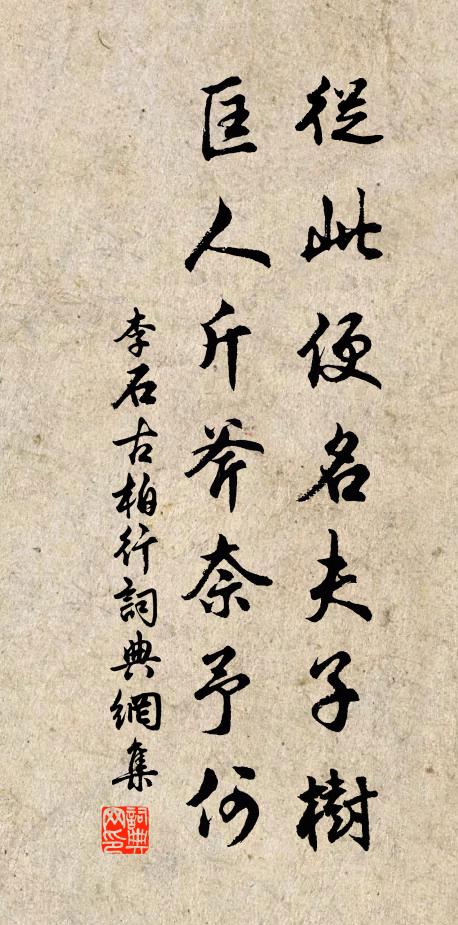 從此便名夫子樹
匡人斤斧奈予何
李石古柏行詞典網集
詞典网印